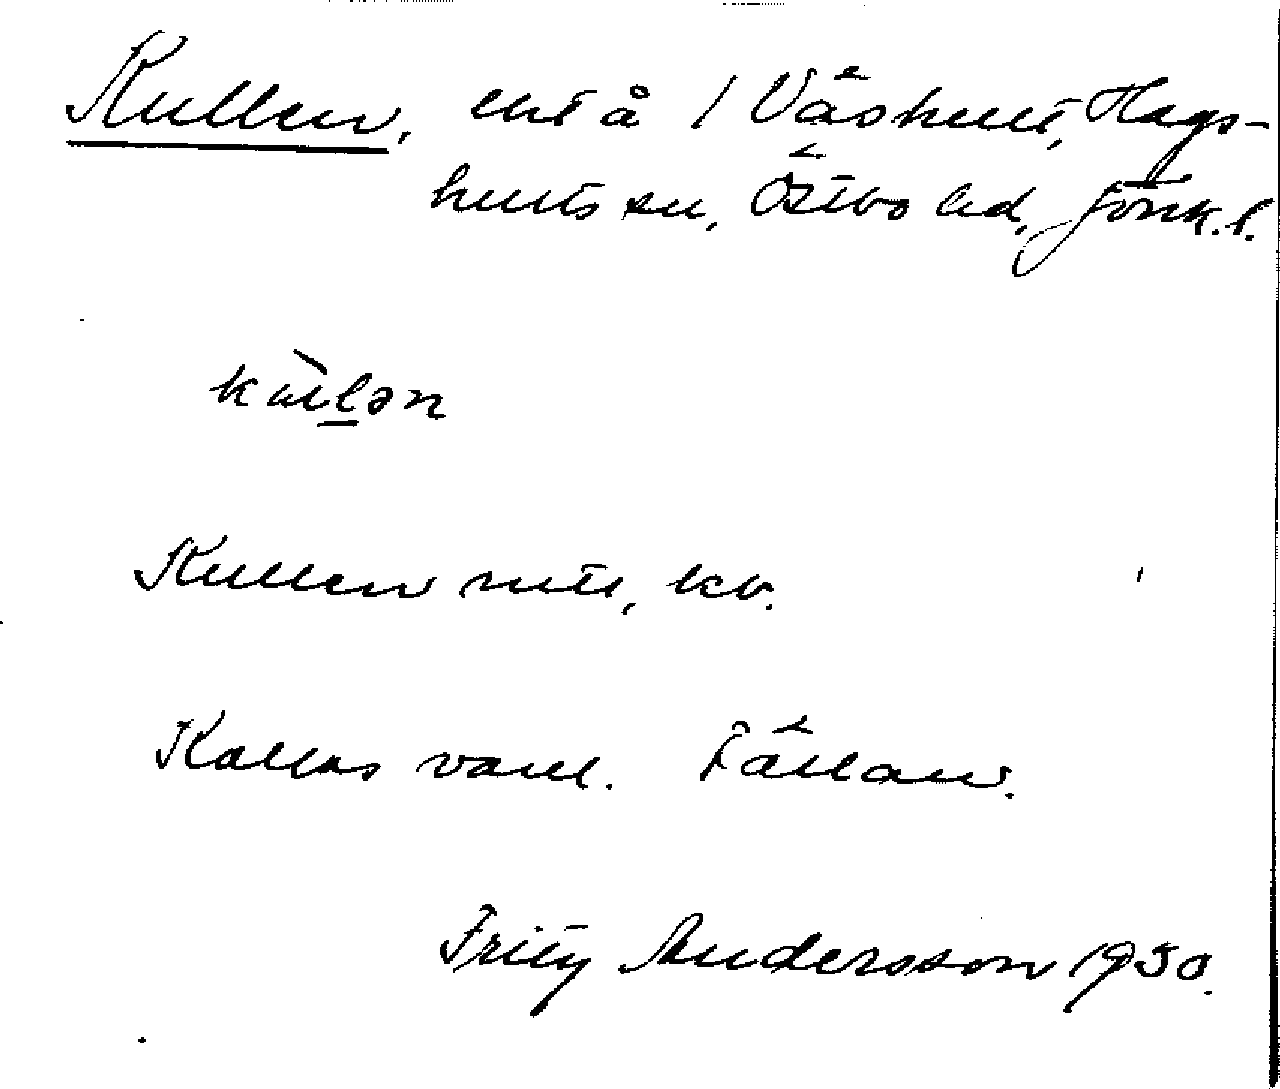 Kullen, lht å 1 Våshult, Hags-
hults sn, Östbo hd, Jönk. l.
Kullen mtl, kv.
Kallas vanl. Fållan.
Frity Andersson 1930.